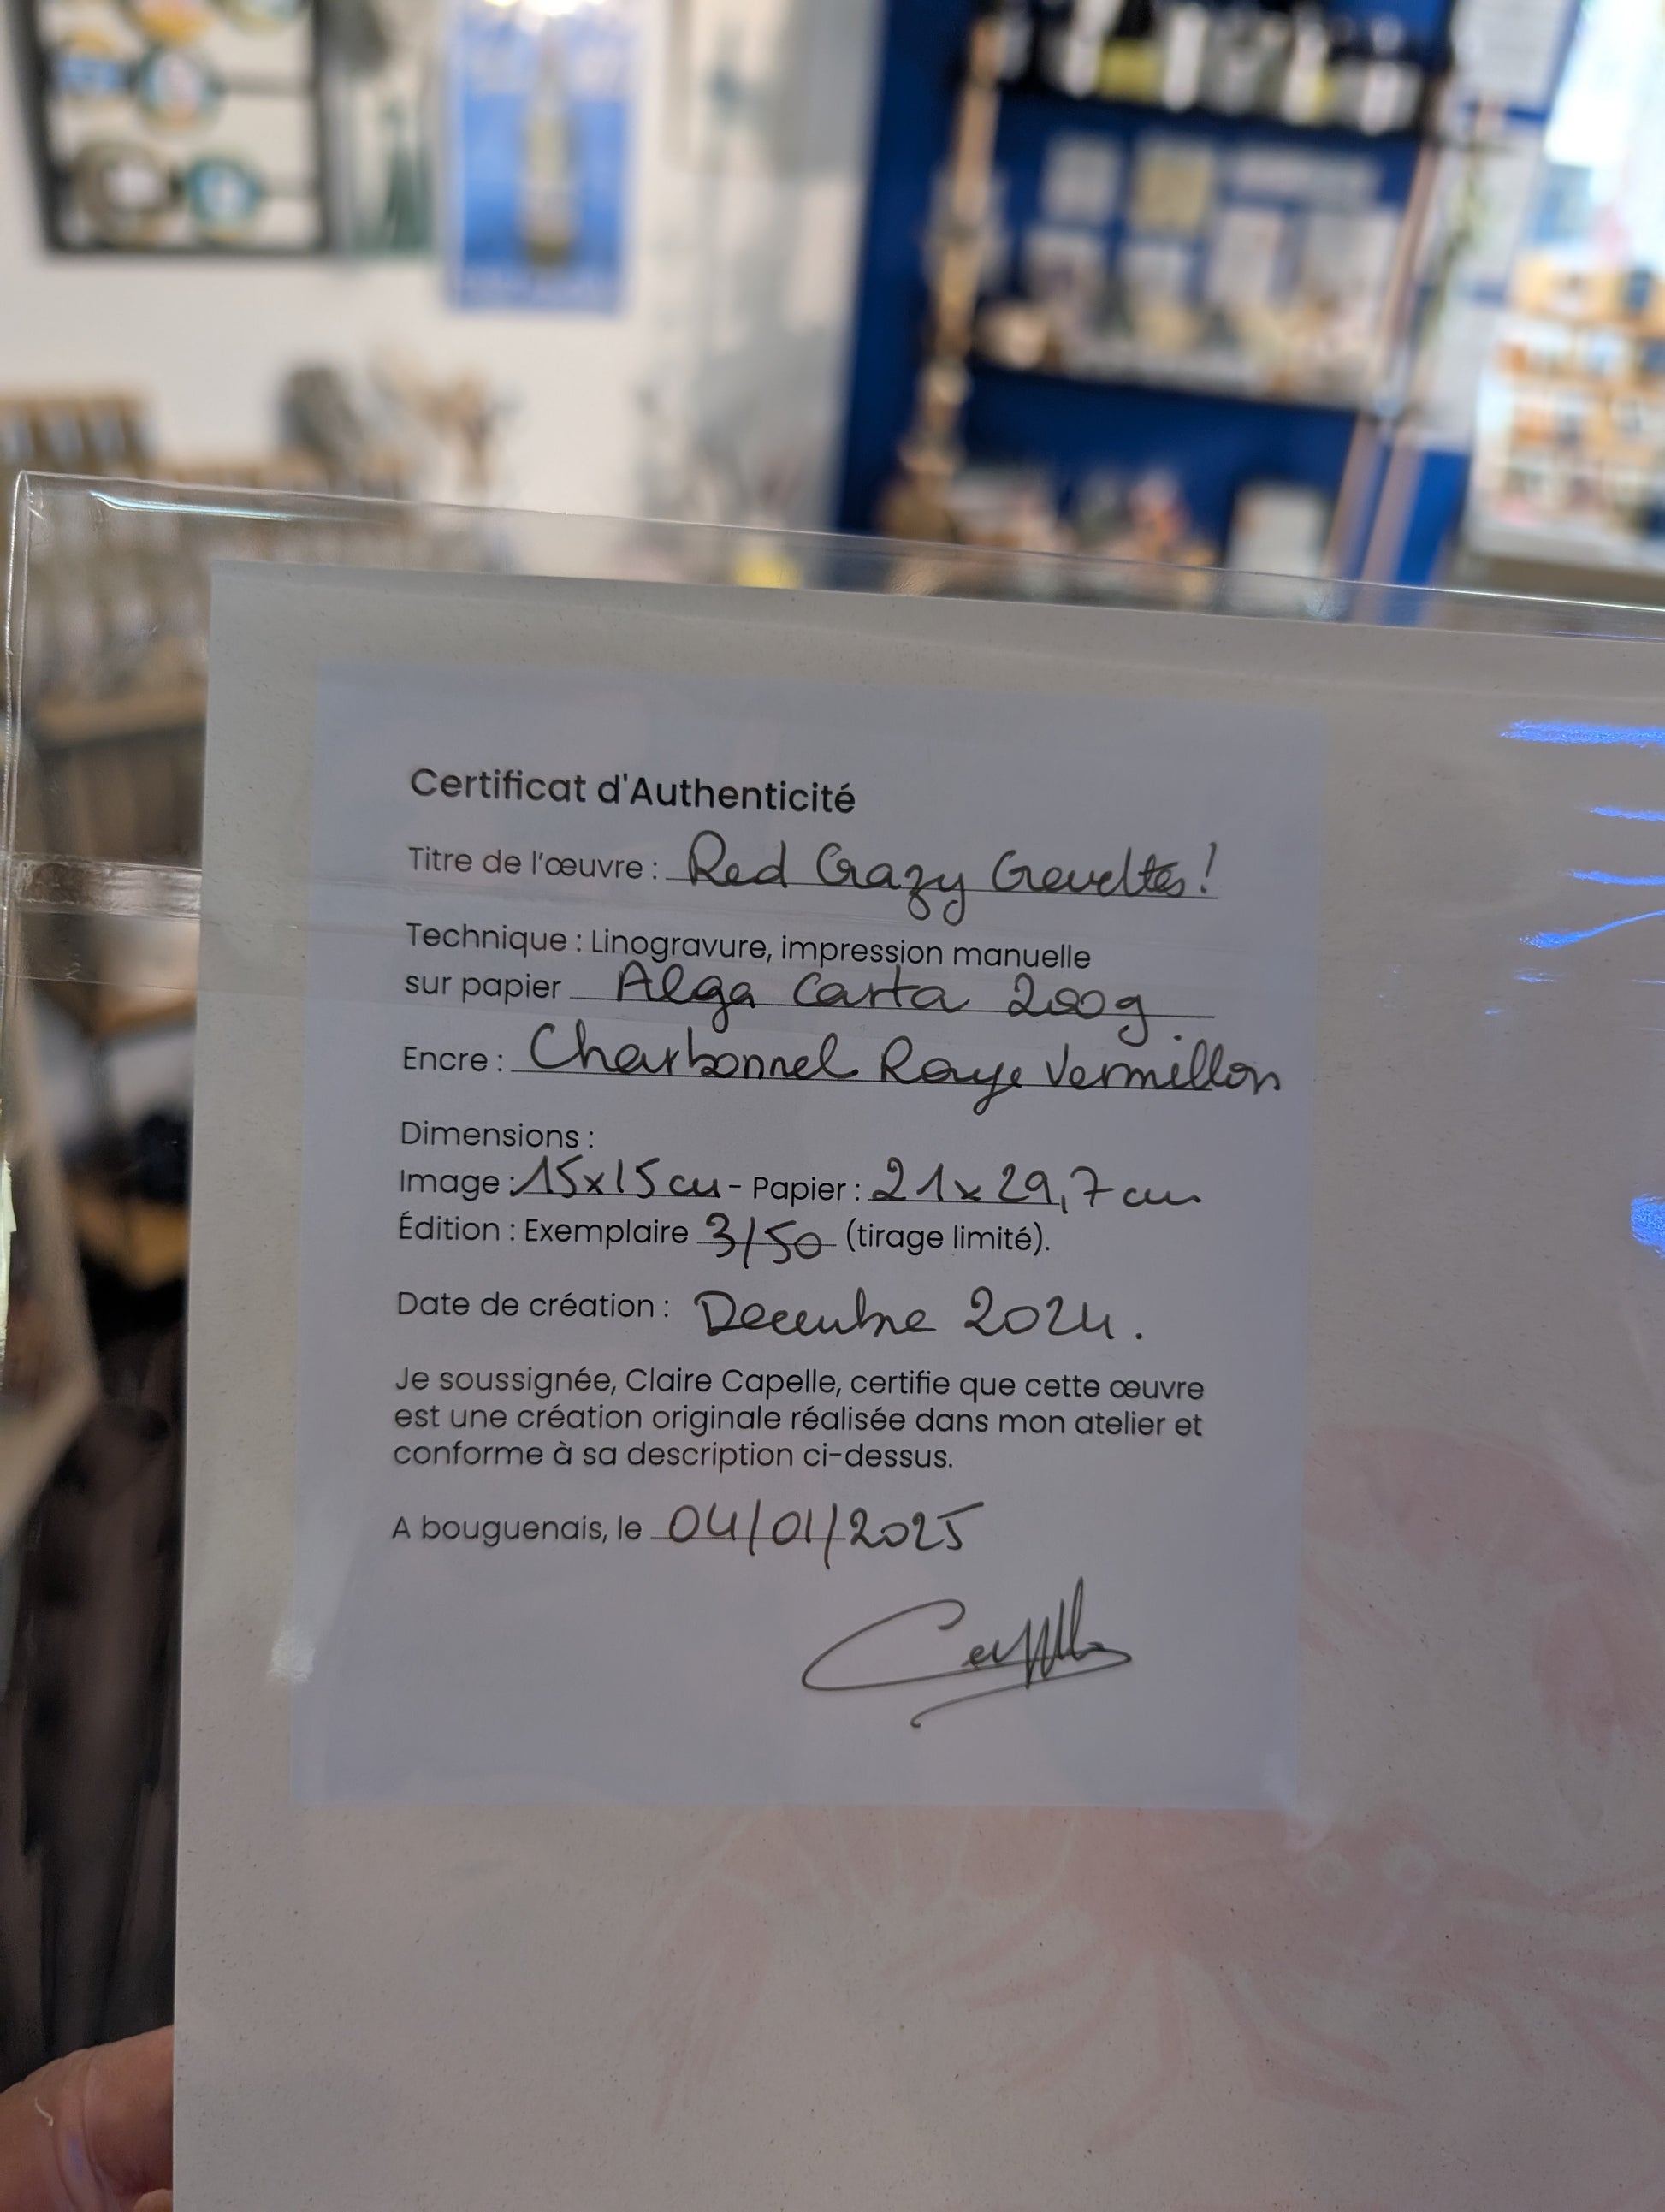 Certificat d'Authenticité
Titre de l'œuvre : Red Crazy Crevettes!
Technique : Linogravure, impression manuelle
sur papier Alga Carta 200g
Encre : Charbonnel Rouge Vermillon
Dimensions :
Image : 15x15 cm - Papier : 21x29,7 cm
Édition : Exemplaire 3/50 (tirage limité).
Date de création : Decembre 2024.
Je soussignée, Claire Capelle, certifie que cette œuvre
est une création originale réalisée dans mon atelier et
conforme à sa description ci-dessus.
A bouguenais, le 04/01/2025
Capelle